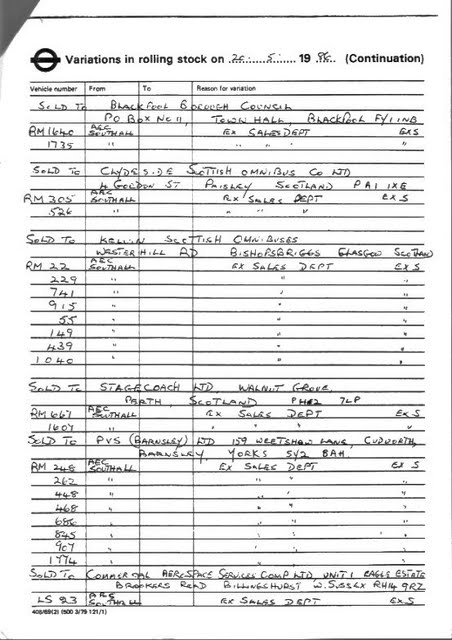 Variations in rolling stock on 20.5.1986. (Continuation)
Vehicle number From To Reason for variation
SOLD TO BLACKPOOL BOROUGH COUNCIL
PO BOX NO 11, TOWN HALL, BLACKPOOL FY1 1NB
RM1640 AEC SOUTHALL EX SALES DEPT EX S
1735 " " " "
SOLD TO CLYDESIDE SCOTTISH OMNIBUS CO LTD
4 GORDON ST PAISLEY SCOTLAND PA1 1XE
RM305 AEC SOUTHALL EX SALES DEPT EX S
526 " " " " "
SOLD TO KELVIN SCOTTISH OMNIBUSES
WESTERHILL RD BISHOPSBRIGGS GLASGOW SCOTLAND
RM 22 AEC SOUTHALL EX SALES DEPT EX S
229 " " "
741 " " "
915 " " "
55 " " "
149 " " "
439 " " "
1040 " " "
SOLD TO STAGECOACH LTD, WALNUT GROVE,
PERTH, SCOTLAND PH2 7LP
RM667 AEC SOUTHALL EX SALES DEPT EX S
1607 " " " "
SOLD TO PVS (BARNSLEY) LTD 159 WEETSHAW LANE, CUDWORTH,
BARNSLEY, YORKS S72 8AH.
RM 248 AEC SOUTHALL EX SALES DEPT EX S
262 " " "
448 " " "
468 " " "
686 " " "
845 " " "
907 " " "
1774 " " "
SOLD TO COMMERCIAL AEROSPACE SERVICES COMP LTD, UNIT 1 EAGLE ESTATE
BROOKERS ROAD BILLINGSHURST W.SUSSEX RH14 9RZ
LS 23 AEC SOUTHALL EX SALES DEPT EX S
408/68(2) (500 3/79 121/1)